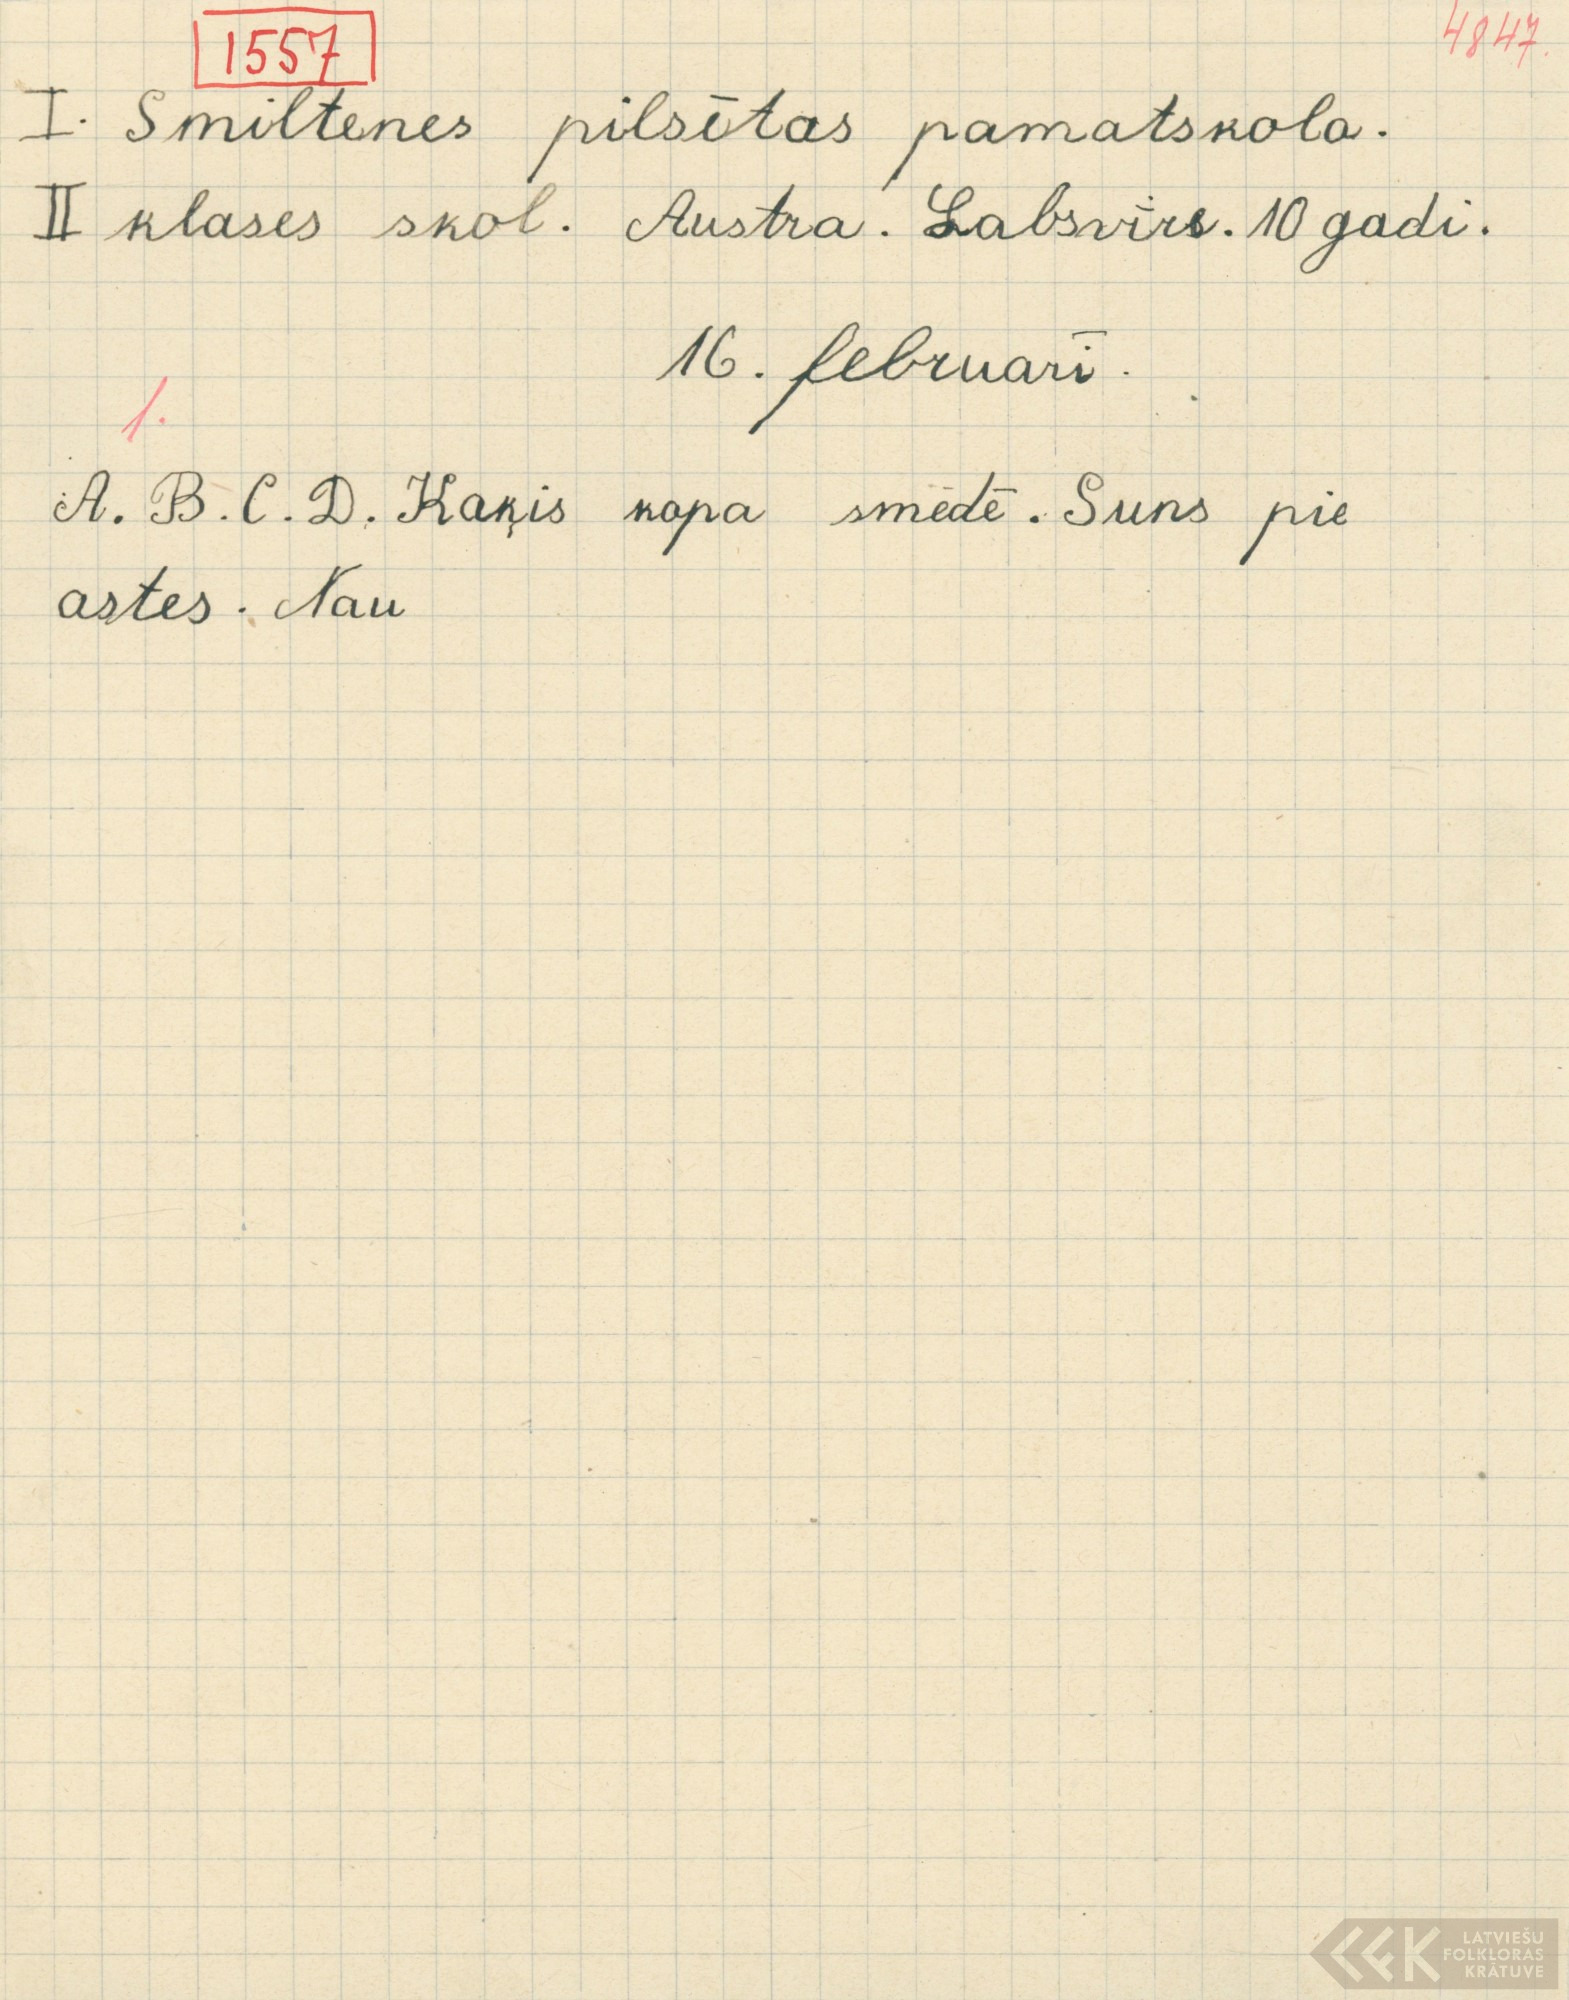 1557
4847.
I. Smiltenes pilsētas pamatskola.
II klases skol. Austra. Labsvīrs. 10 gadi.
16. februarī.
1.
A. B. C. D. Kaķis kopa smēdē. Suns pie
astes. Nau
LATVIEŠU
FOLKLORAS
KRĀTUVE